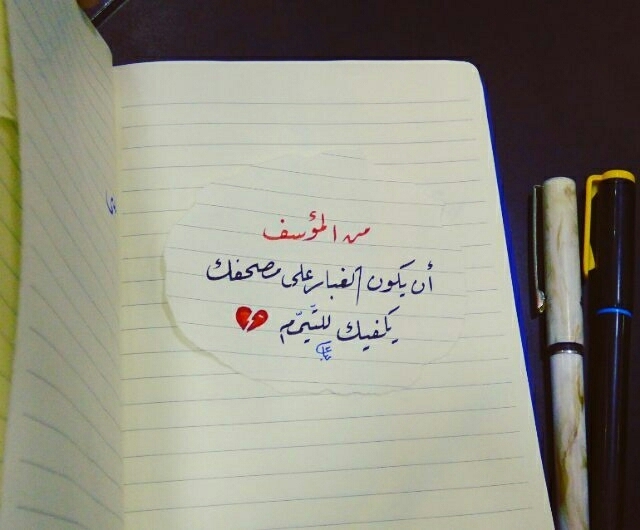 من المؤسف
أن يكون الغبار على مصحفك
يكفيك للتيمّم 💔